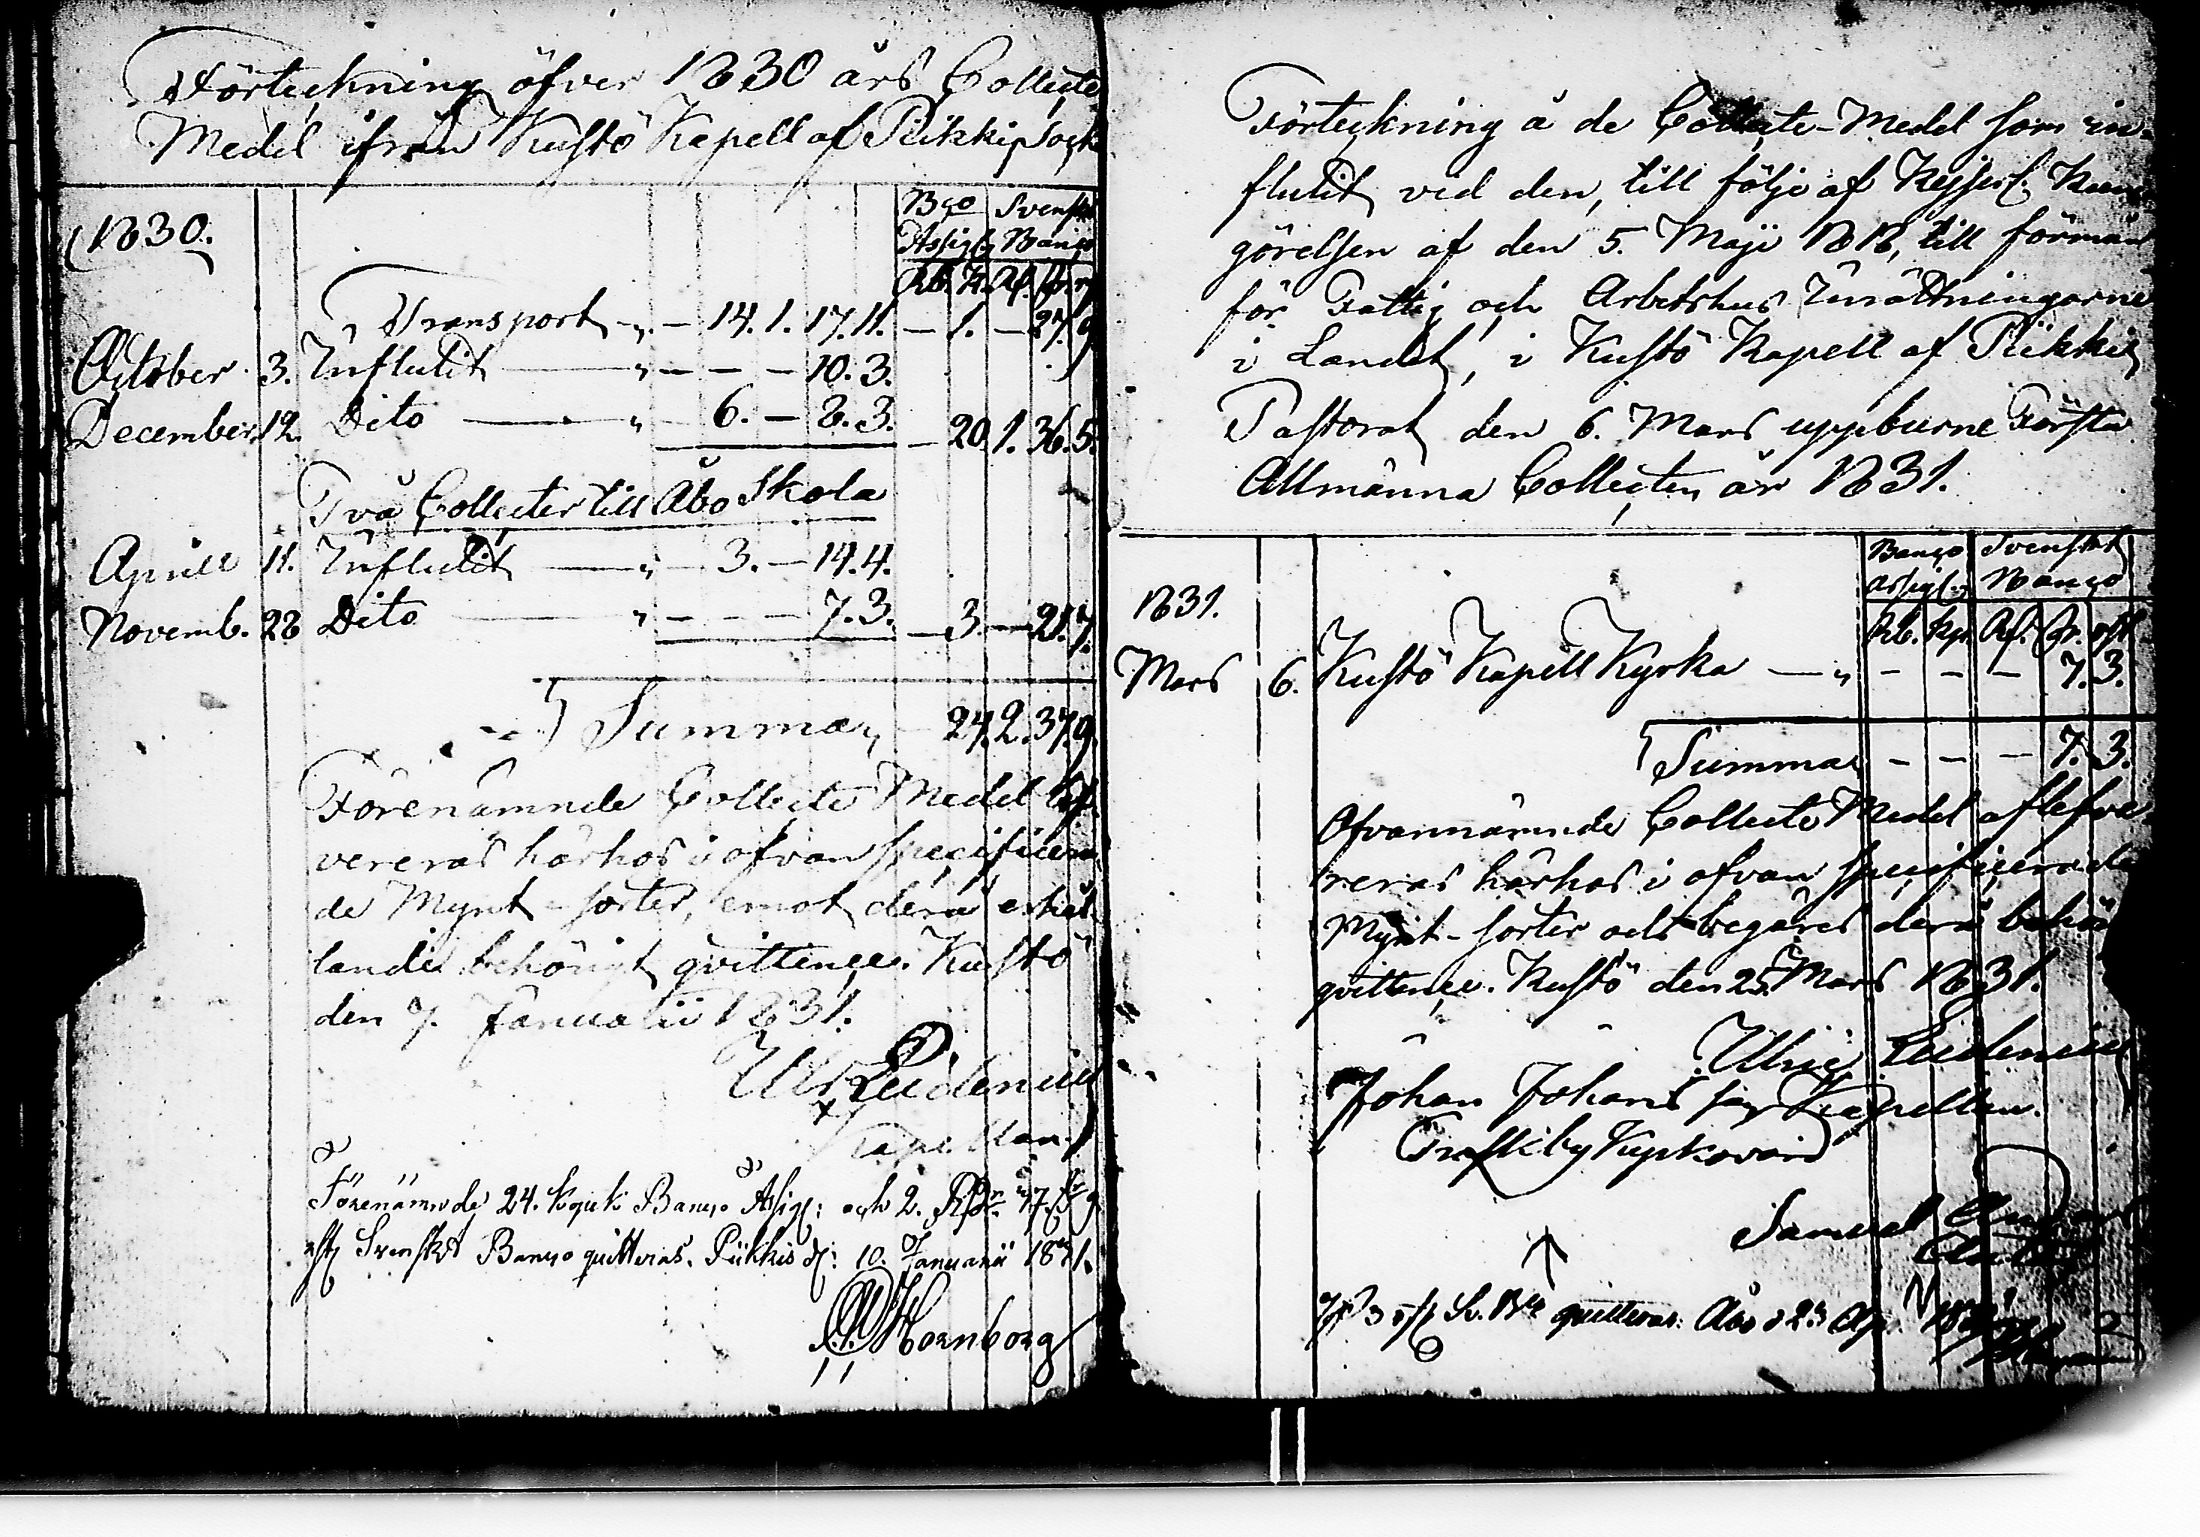 Förteckning öfver 1830 års Collecte
Medel ifrån Kustö Kapell af Piikkis Sock
1830.
Bco Svenskt
Assign Banco
Rb. K. Rd. sk. rs
Transport " — 14. 1. 17. 11. — 1. — 27. 9
October 3. Influtit — " — — — 10. 3.
December 12. Dito — " 6. — 8. 3. — 20. 1. 36. 5.
Två Collecter till Åbo Skola
Aprill 11. Influtit — " 3. — 14. 4.
Novemb. 28 Dito — " — — — 7. 3. — 3. — 21. 7.
Summa, 24. 2. 37. 9.
Förenämnde Collecte Medel lef-
vereras härhos i ofvan specificera
de Mynt-sorter, emot derå erhål-
lande behörigt qvittence. Kustö
den 7. Januarii 1831.
Ulr Leidenius
Kapellan.
Förenämnde 24. Kopek Banco Assign: och 2. Rdr 37. sk 9
rst Svenskt Banco quitteras. Piikkis d: 10. Januarii 1831.
Hornborg
Förteckning å de Collecte-Medel som in-
flutit ved den, till följe af Kejserl. Kun
görelsen af den 5. Maji 1818, till förmån
för Fattig och Arbetshus Inrättningarne
i Landet, i Kustö Kapell af Piikkis
Pastorat den 6. Mars uppburne Första
Allmänna Collecten år 1831.
Banco Svenskt
Assign: Banco
1831. Rb. Kp. Rd. sk. rst
Mars 6. Kustö Kapell Kyrka — " — — — 7. 3.
Summa — — — 7. 3.
Ofvannämnde Collecte Medel aflefve-
reras härhos i ofvan specificerade
Mynt-sorter och begäres derå behör
qvittence. Kustö den 25. Mars 1831.
Ulric Leidenius
Johan Johans son Kapellan.
Kyrkovärd
Samuel
7 sk 3 rst Sv. Bco quitteras. Åbo d 23 Ap.